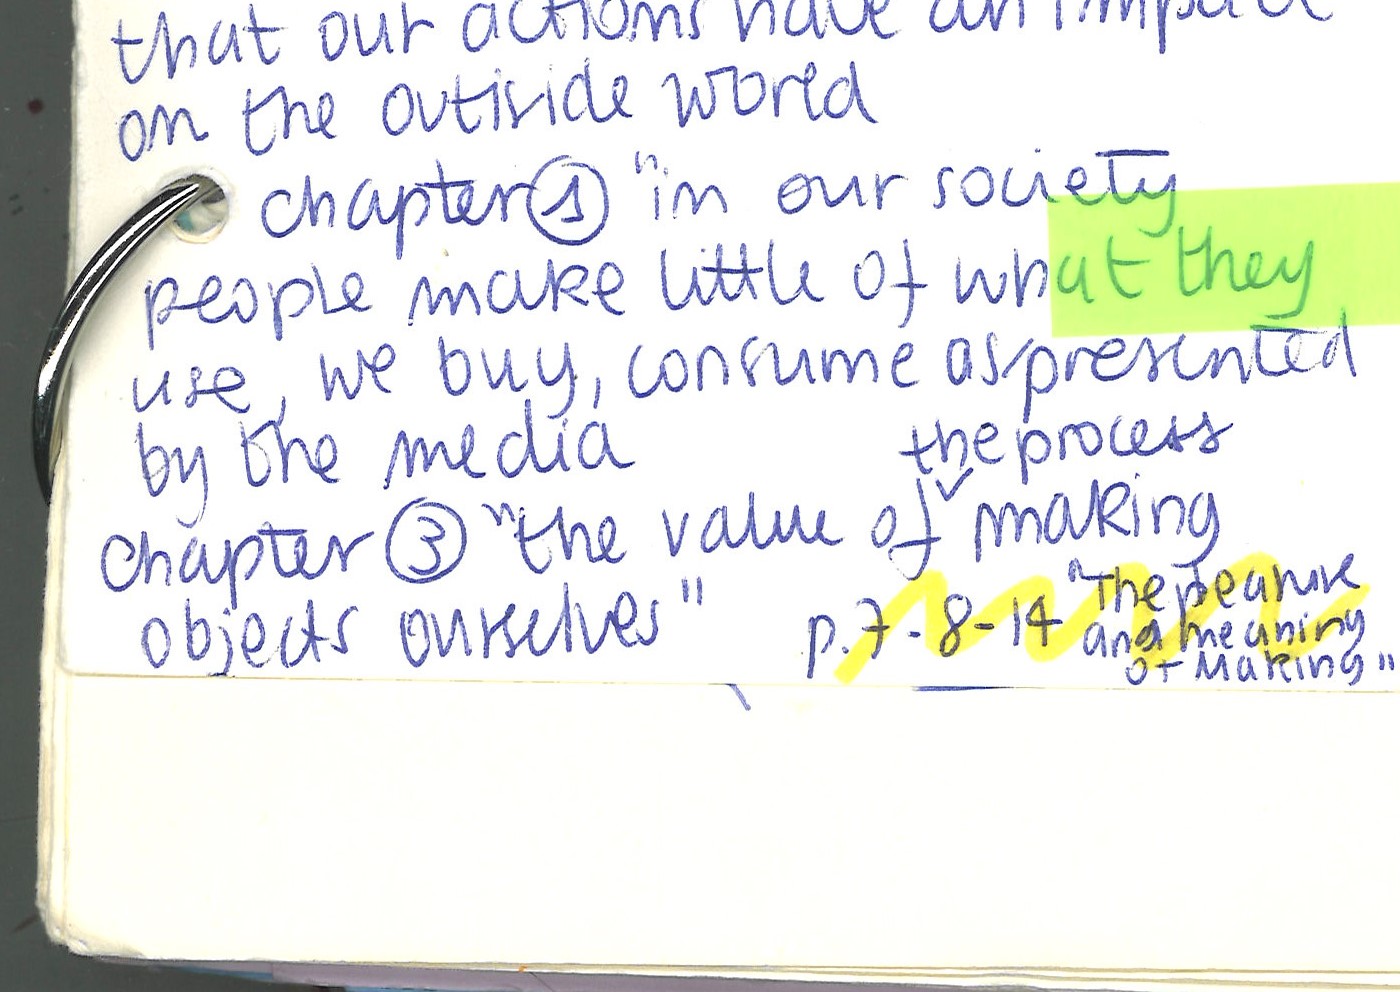 that our actions have an impact
on the outiside world
chapter ① "in our society
people make little of what they
use, we buy, consume as presented
by the media
the process
chapter ③ "the value of making
objects ourselves"
p.7-8-14 "The peanure
and meaning
of Making"